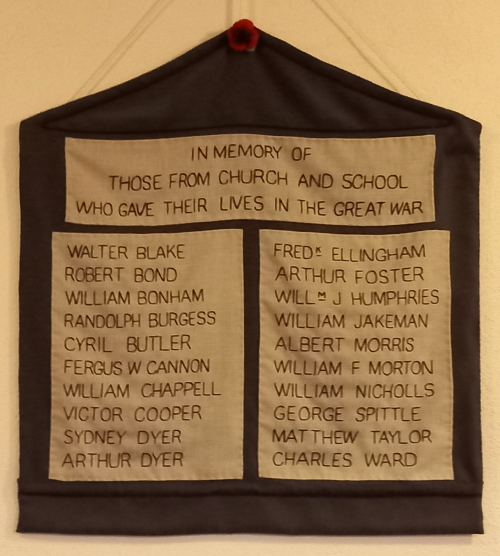 IN MEMORY OF
THOSE FROM CHURCH AND SCHOOL
WHO GAVE THEIR LIVES IN THE GREAT WAR
WALTER BLAKE
ROBERT BOND
WILLIAM BONHAM
RANDOLPH BURGESS
CYRIL BUTLER
FERGUS W CANNON
WILLIAM CHAPPELL
VICTOR COOPER
SYDNEY DYER
ARTHUR DYER
FREDK ELLINGHAM
ARTHUR FOSTER
WILLM J HUMPHRIES
WILLIAM JAKEMAN
ALBERT MORRIS
WILLIAM F MORTON
WILLIAM NICHOLLS
GEORGE SPITTLE
MATTHEW TAYLOR
CHARLES WARD